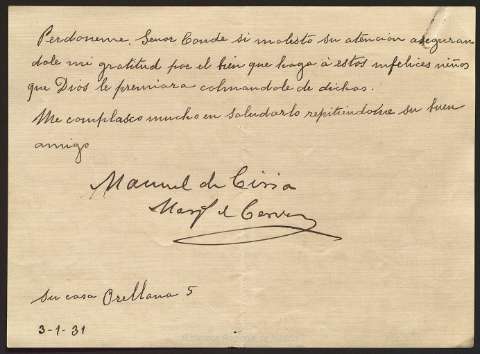 Perdoneme, Señor Conde si molesto su atencion aseguran
dole mi gratitud por el bien que haga á estos infelices niños
que Dios le premiara colmandole de dichas.
Me complasco mucho en saludarlo repitiendome su buen
amigo
Manuel de Ciria
Marq. de Cervera
Su casa Orellana 5
3-1-31